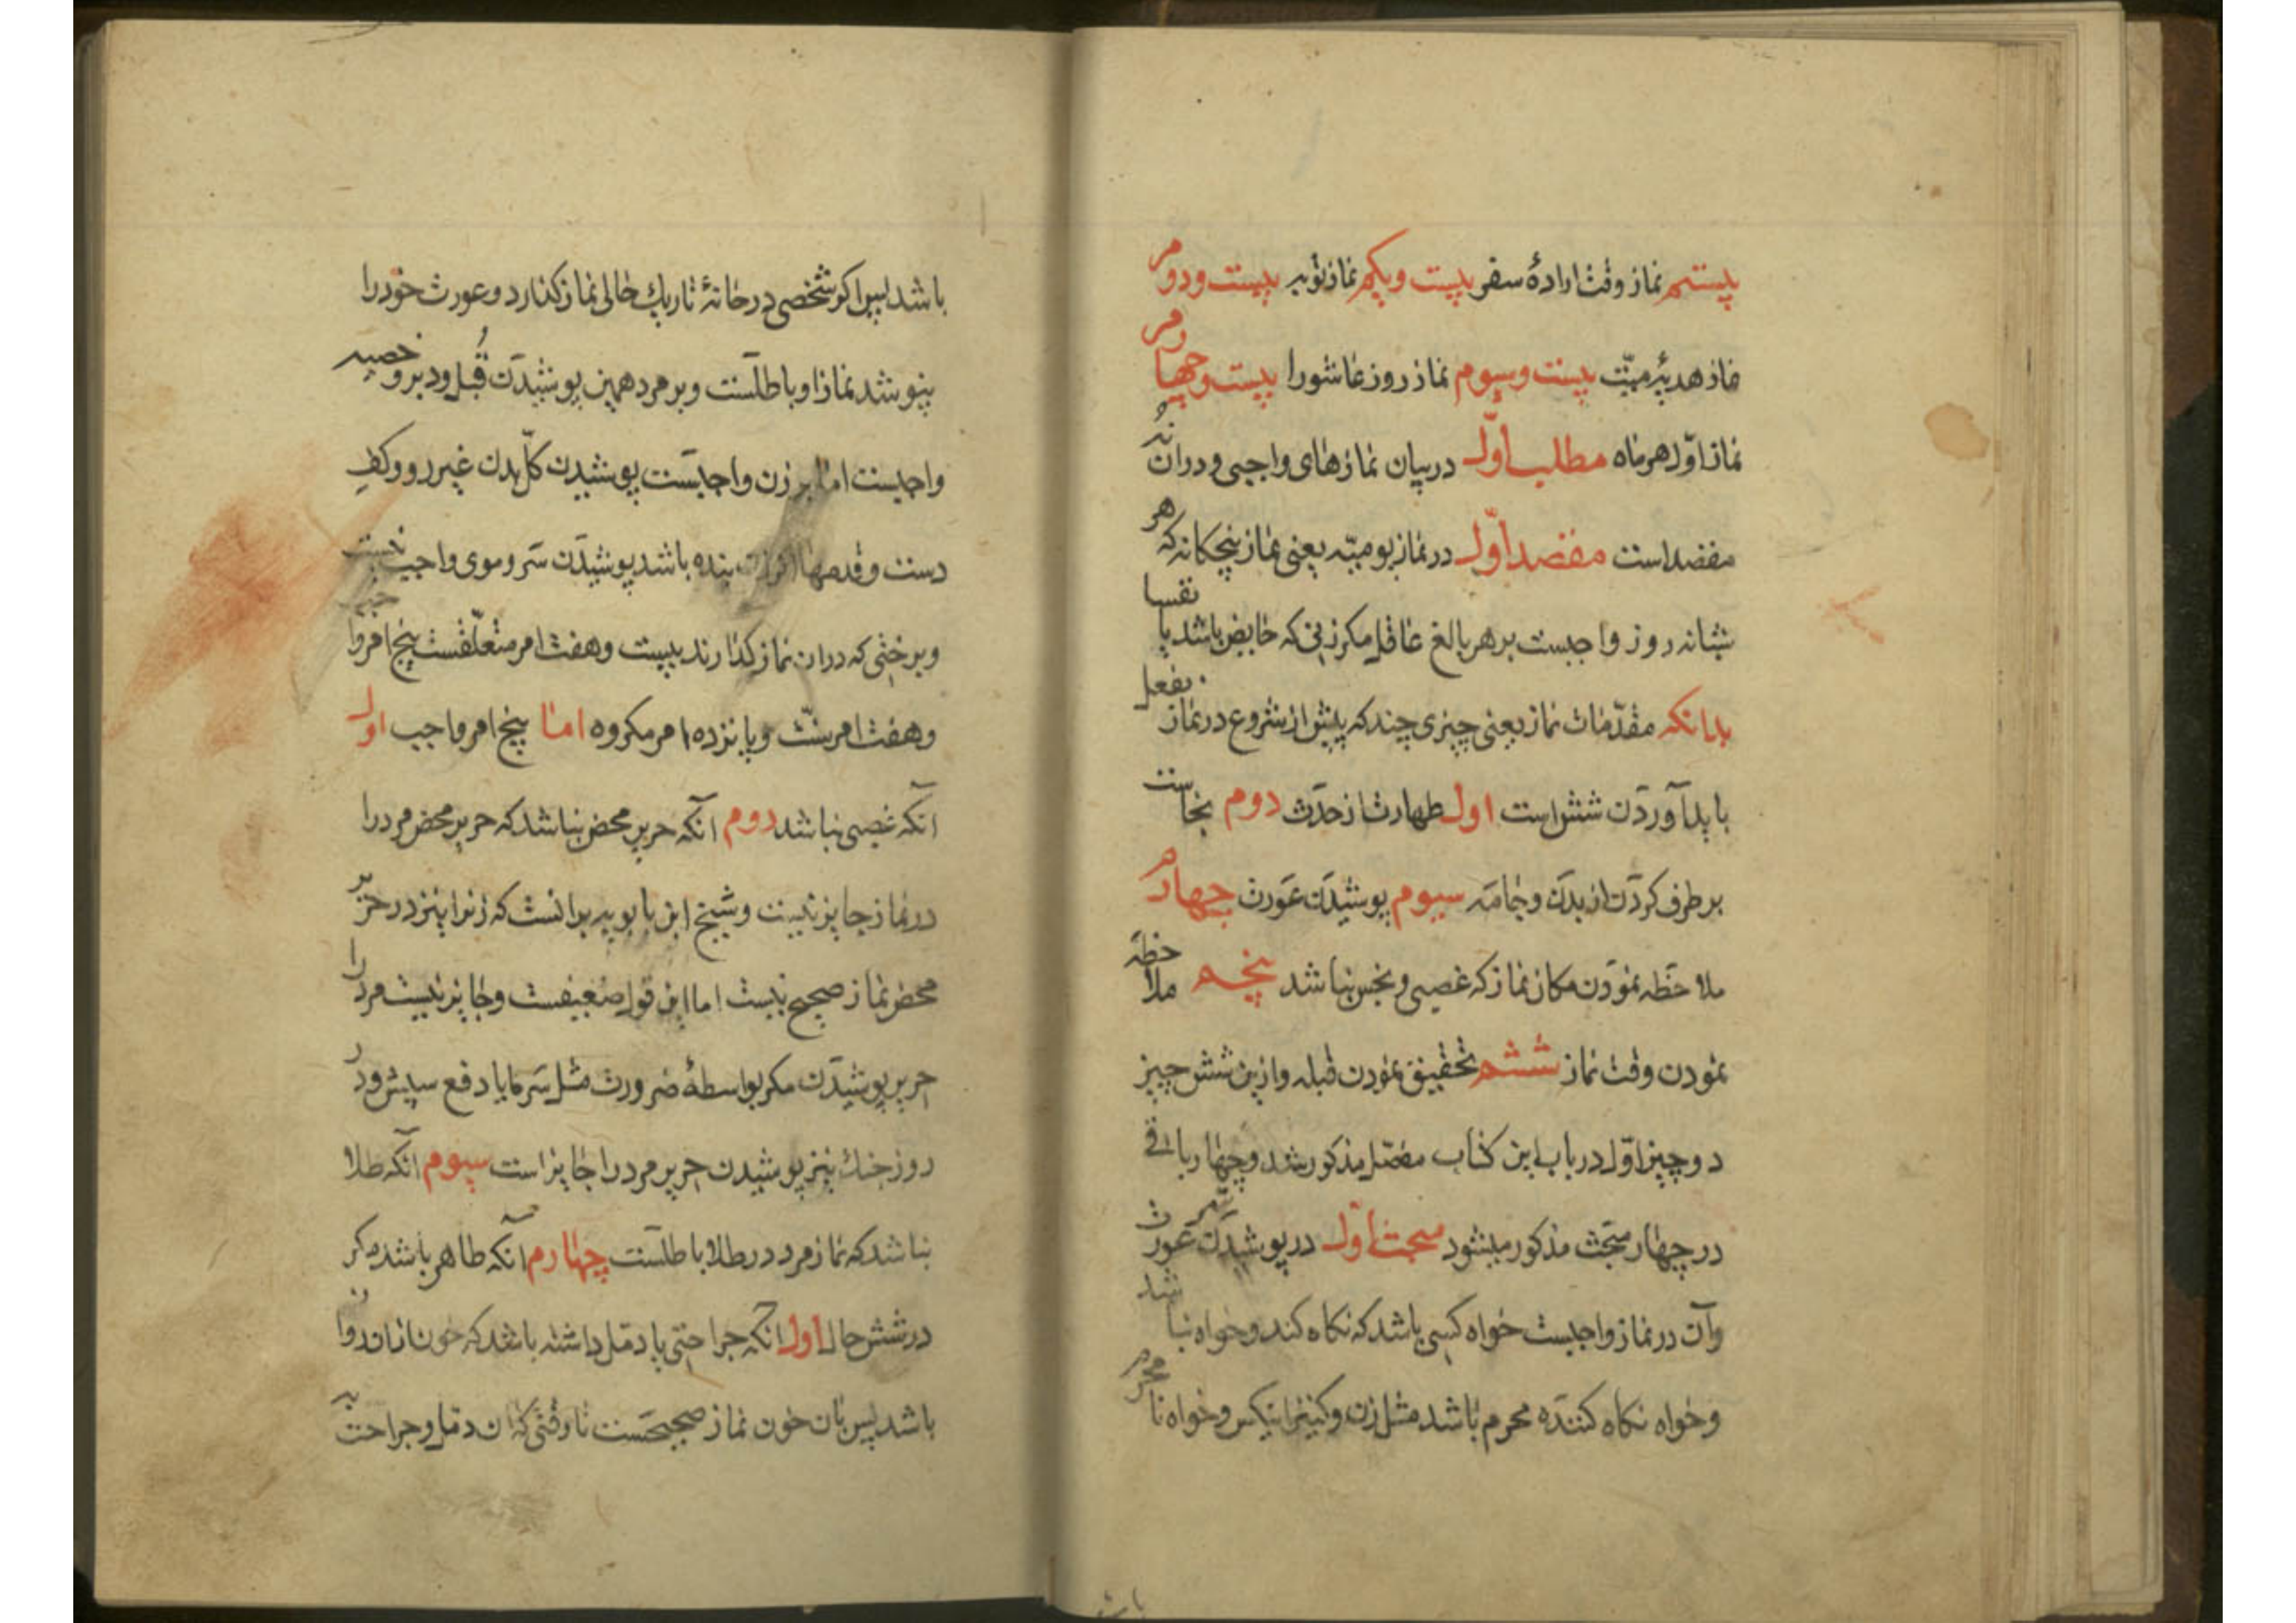 بیستم نماز وقت ارادهٔ سفر بیست ویکم نماز توبه بیست ودوم
نماز هدیهٔ میّت بیست وسیوم نماز روز عاشورا بیست وچهارم
نماز اوّل هر ماه مطلب اوّل در بیان نمازهای واجبی ودران نُه
مقصد است مقصد اوّل در نماز یومیّه یعنی نماز پنجکانه که هر
شبانه روز واجبست بر هر بالغ عاقل مکر زنی که حایض باشد یا نفسا
بدانکه مقدّمات نماز یعنی چیزی چند که پیش از شروع در نماز بفعل
باید آوردن شش است اول طهارت از حدث دوم نجاست
برطرف کردن از بدن وجامه سیوم پوشیدن عورت چهارم
ملاحظه نمودن مکان نماز که غصبی ونجس نباشد پنجم ملاحظه
نمودن وقت نماز ششم تحقیق نمودن قبله وازین شش چیز
دو چیز اوّل در باب این کتاب مفصّل مذکور شد وچهار باقی
در چهار مبحث مذکور میشود مبحث اول در پوشیدن عورت
وآن در نماز واجبست خواه کسی باشد که نکاه کند وخواه نباشد
وخواه نکاه کننده محرم باشد مثل زن وکنیز اینکس وخواه نامحرم
باشد پس اکر شخصی در خانهٔ تاریك خالی نماز کذارد وعورت خود را
نپوشد نماز او باطلست وبر مرد همین پوشیدن قُبل ودبر وخصیه
واجبست اما بر زن واجبست پوشیدن کلّ بدن غیر رو وکف
دست وقدمها بنده باشد پوشیدن سر وموی واجب نیست
وبرختی که دران نماز کذارند بیست وهفت امر متعلّقست پنج امر واجب
وهفت امر سنّت وپانزده امر مکروه اما پنج امر واجب اول
آنکه غصبی نباشد دوم آنکه حریر محض نباشد که حریر محض مرد را
در نماز جایز نیست وشیخ ابن بابویه برانست که زنرا نیز در حریر
محض نماز صحیح نیست اما این قول ضعیفست وجایز نیست مرد را
حریر پوشیدن مکر بواسطهٔ ضرورت مثل سرما یا دفع سپش ودر
روز جنك نیز پوشیدن حریر مرد را جایز است سیوم آنکه طلا
نباشد که نماز مرد در طلا باطلست چهارم آنکه طاهر باشد مکر
در شش حال اول آنکه جراحتی یا دمل داشته باشد که خون ازان روان
باشد پس بان خون نماز صحیحست تا وقتی که آن دمل وجراحت به